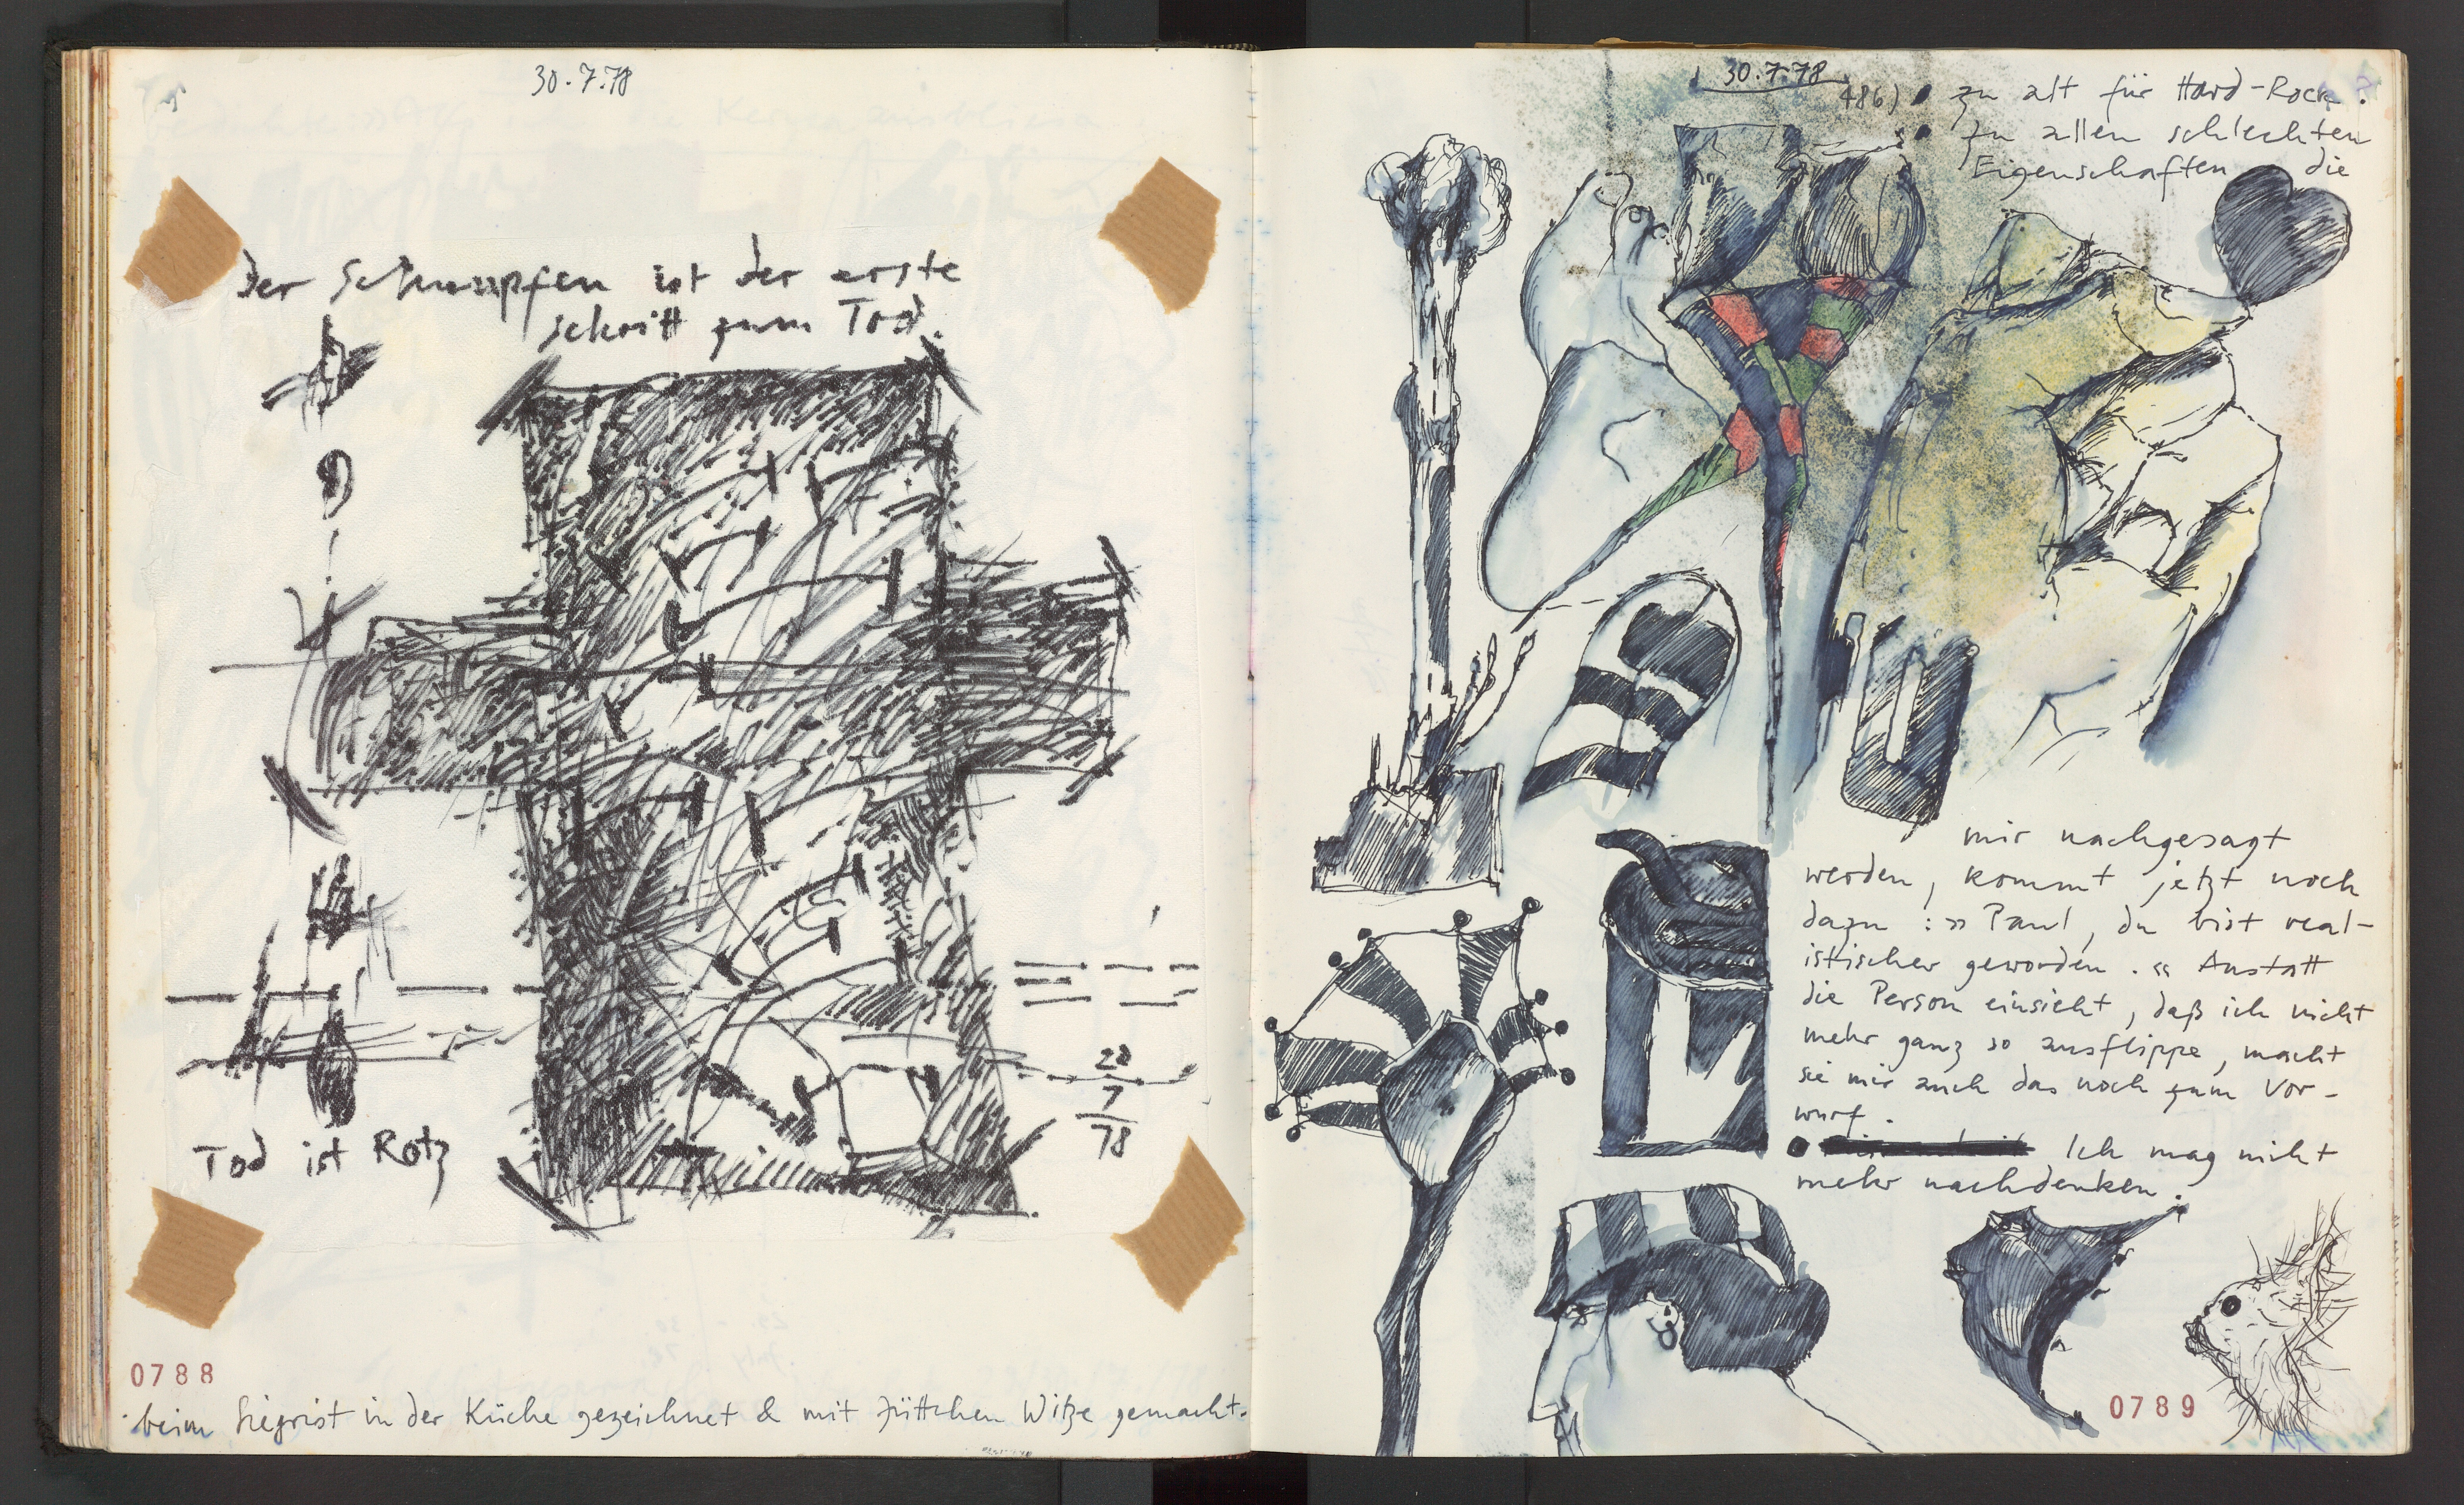 30.7.78
Der Schnuppfen ist der erste
schritt zum Tod.
28
7
78
Tod ist Rotz
0788
beim Siegrist in der Küche gezeichnet & mit Jüttchen Witze gemacht.
30.7.78
486) • zu alt für Hard-Rock.
• zu allen schlechten
Eigenschaften die
mir nachgesagt
werden, kommt jetzt noch
dazu: »Paul, du bist real-
istischer geworden.« Anstatt
die Person einsieht, daß ich nicht
mehr ganz so ausflippe, macht
sie mir auch das noch zum Vor-
wurf.
• Ich mag nicht
mehr nachdenken.
0789